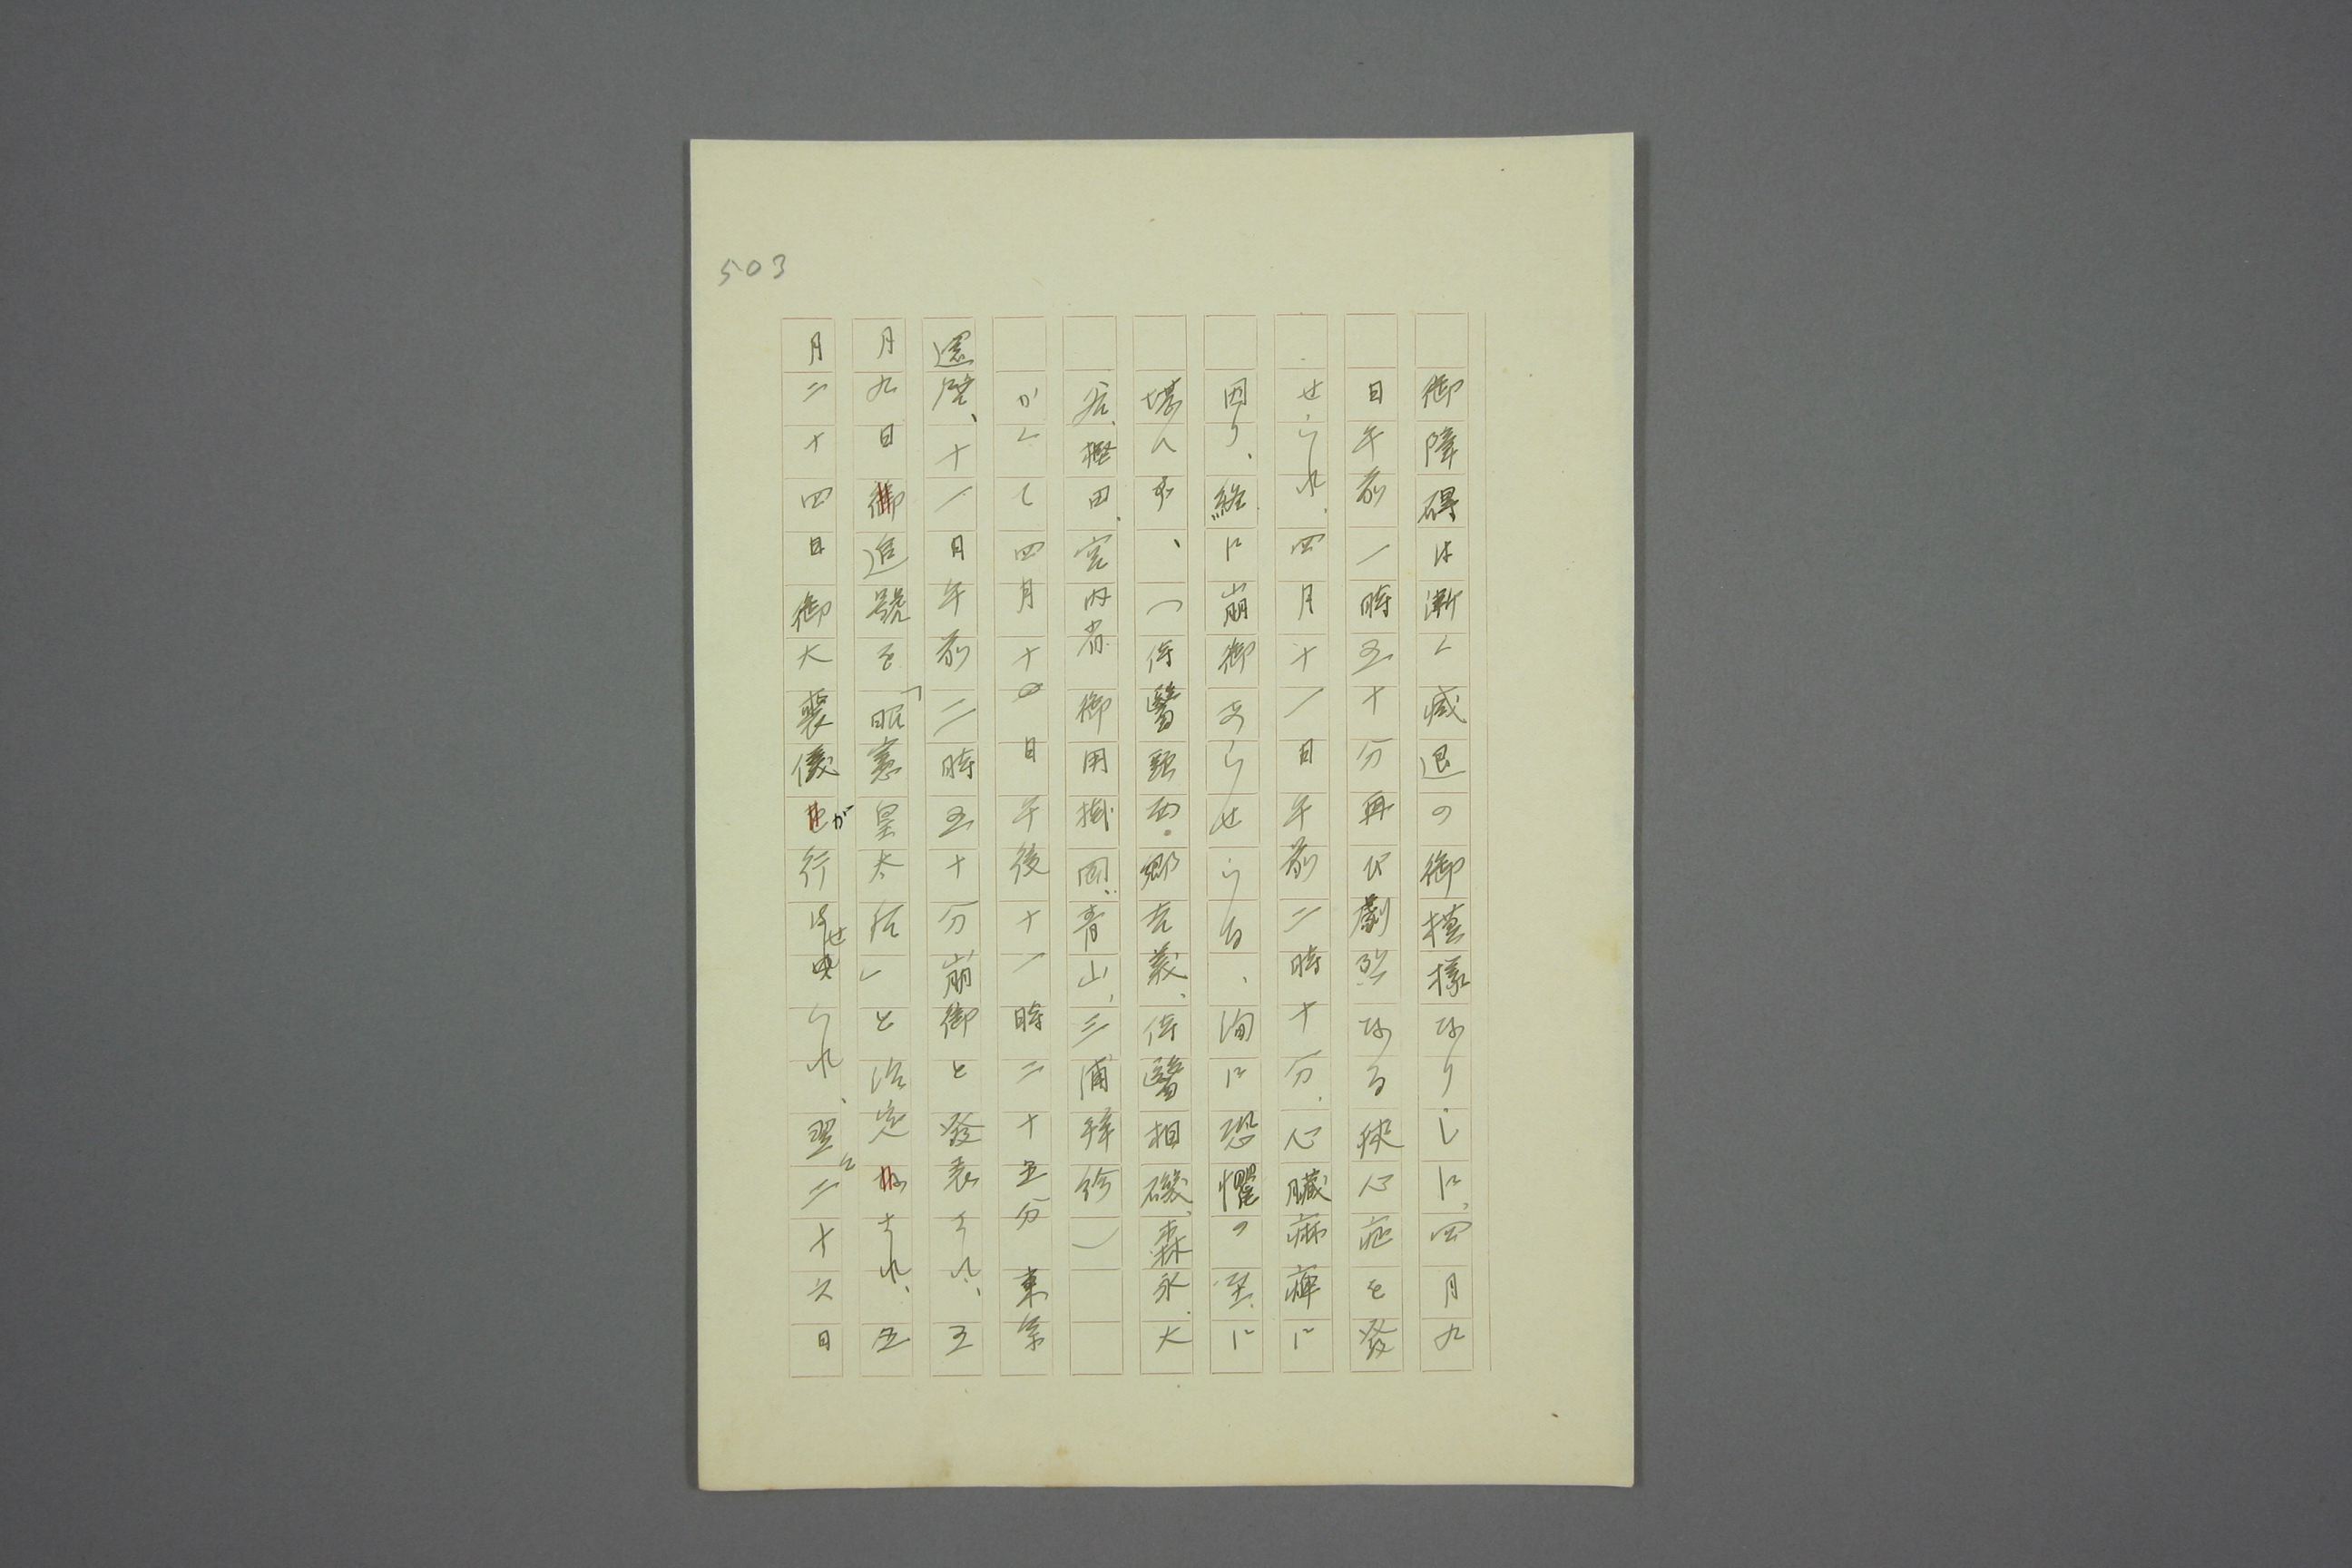 503
御障碍は漸く減退の御模様なりしに、四月九
日午前一時五十分再び劇烈なる狭心症を發
せられ、四月十一日午前二時十分、心臓麻痺に
因り、終に崩御あらせらる、洵に恐懼の至に
堪へず、(侍醫頭西郷吉義、侍醫相磯、森永、大
谷、樫田、宮内省御用掛岡、青山、三浦拜診)
かくて四月十日午後十一時二十五分東京
還啓、十一日午前二時五十分崩御と發表され、五
月九日御追號を「昭憲皇太后」と治定され、五
月二十四日御大喪儀が行はせられ、翌々二十六日